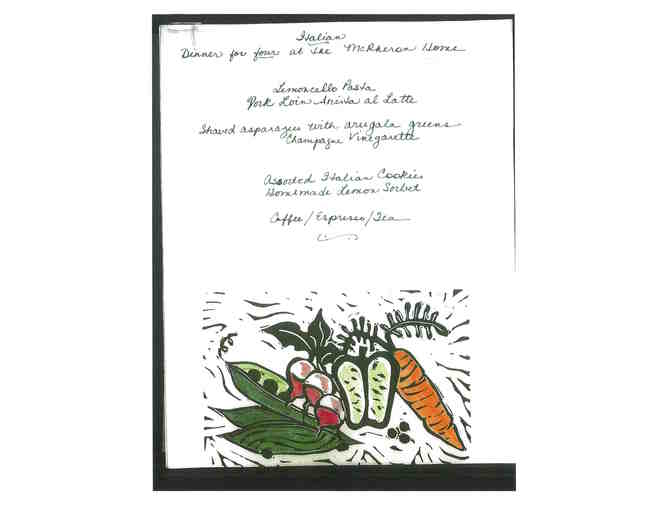 Italian
Dinner for four at the McRheran Home
Limoncello Pasta
Pork Loin Arista al Latte
Shaved asparagus with arugala greens
Champagne Vinegarette
Assorted Italian Cookies
Homemade Lemon Sorbet
Coffee/Espresso/Tea